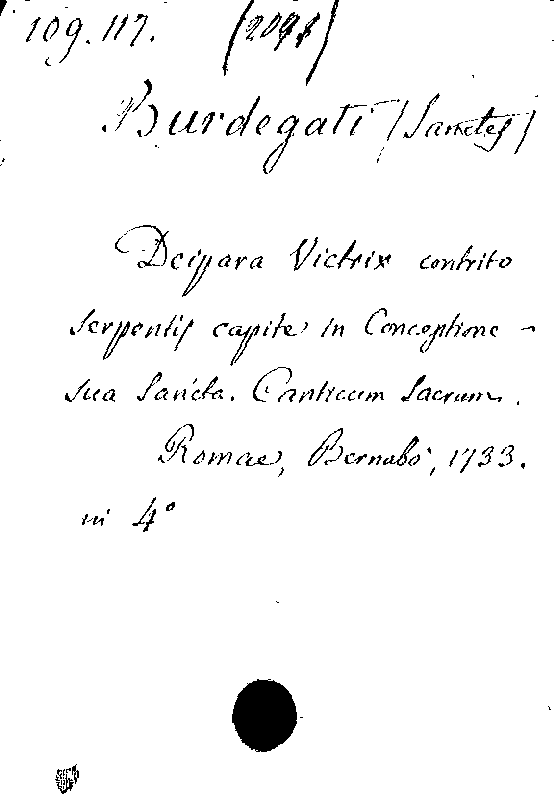 109.117. (2098)
Burdegati (Sanctes)
Deipara Victrix contrito
serpentis capite in Conceptione -
sua Sancta. Canticum Sacrum.
Romae, Bernabò, 1733.
in 4°